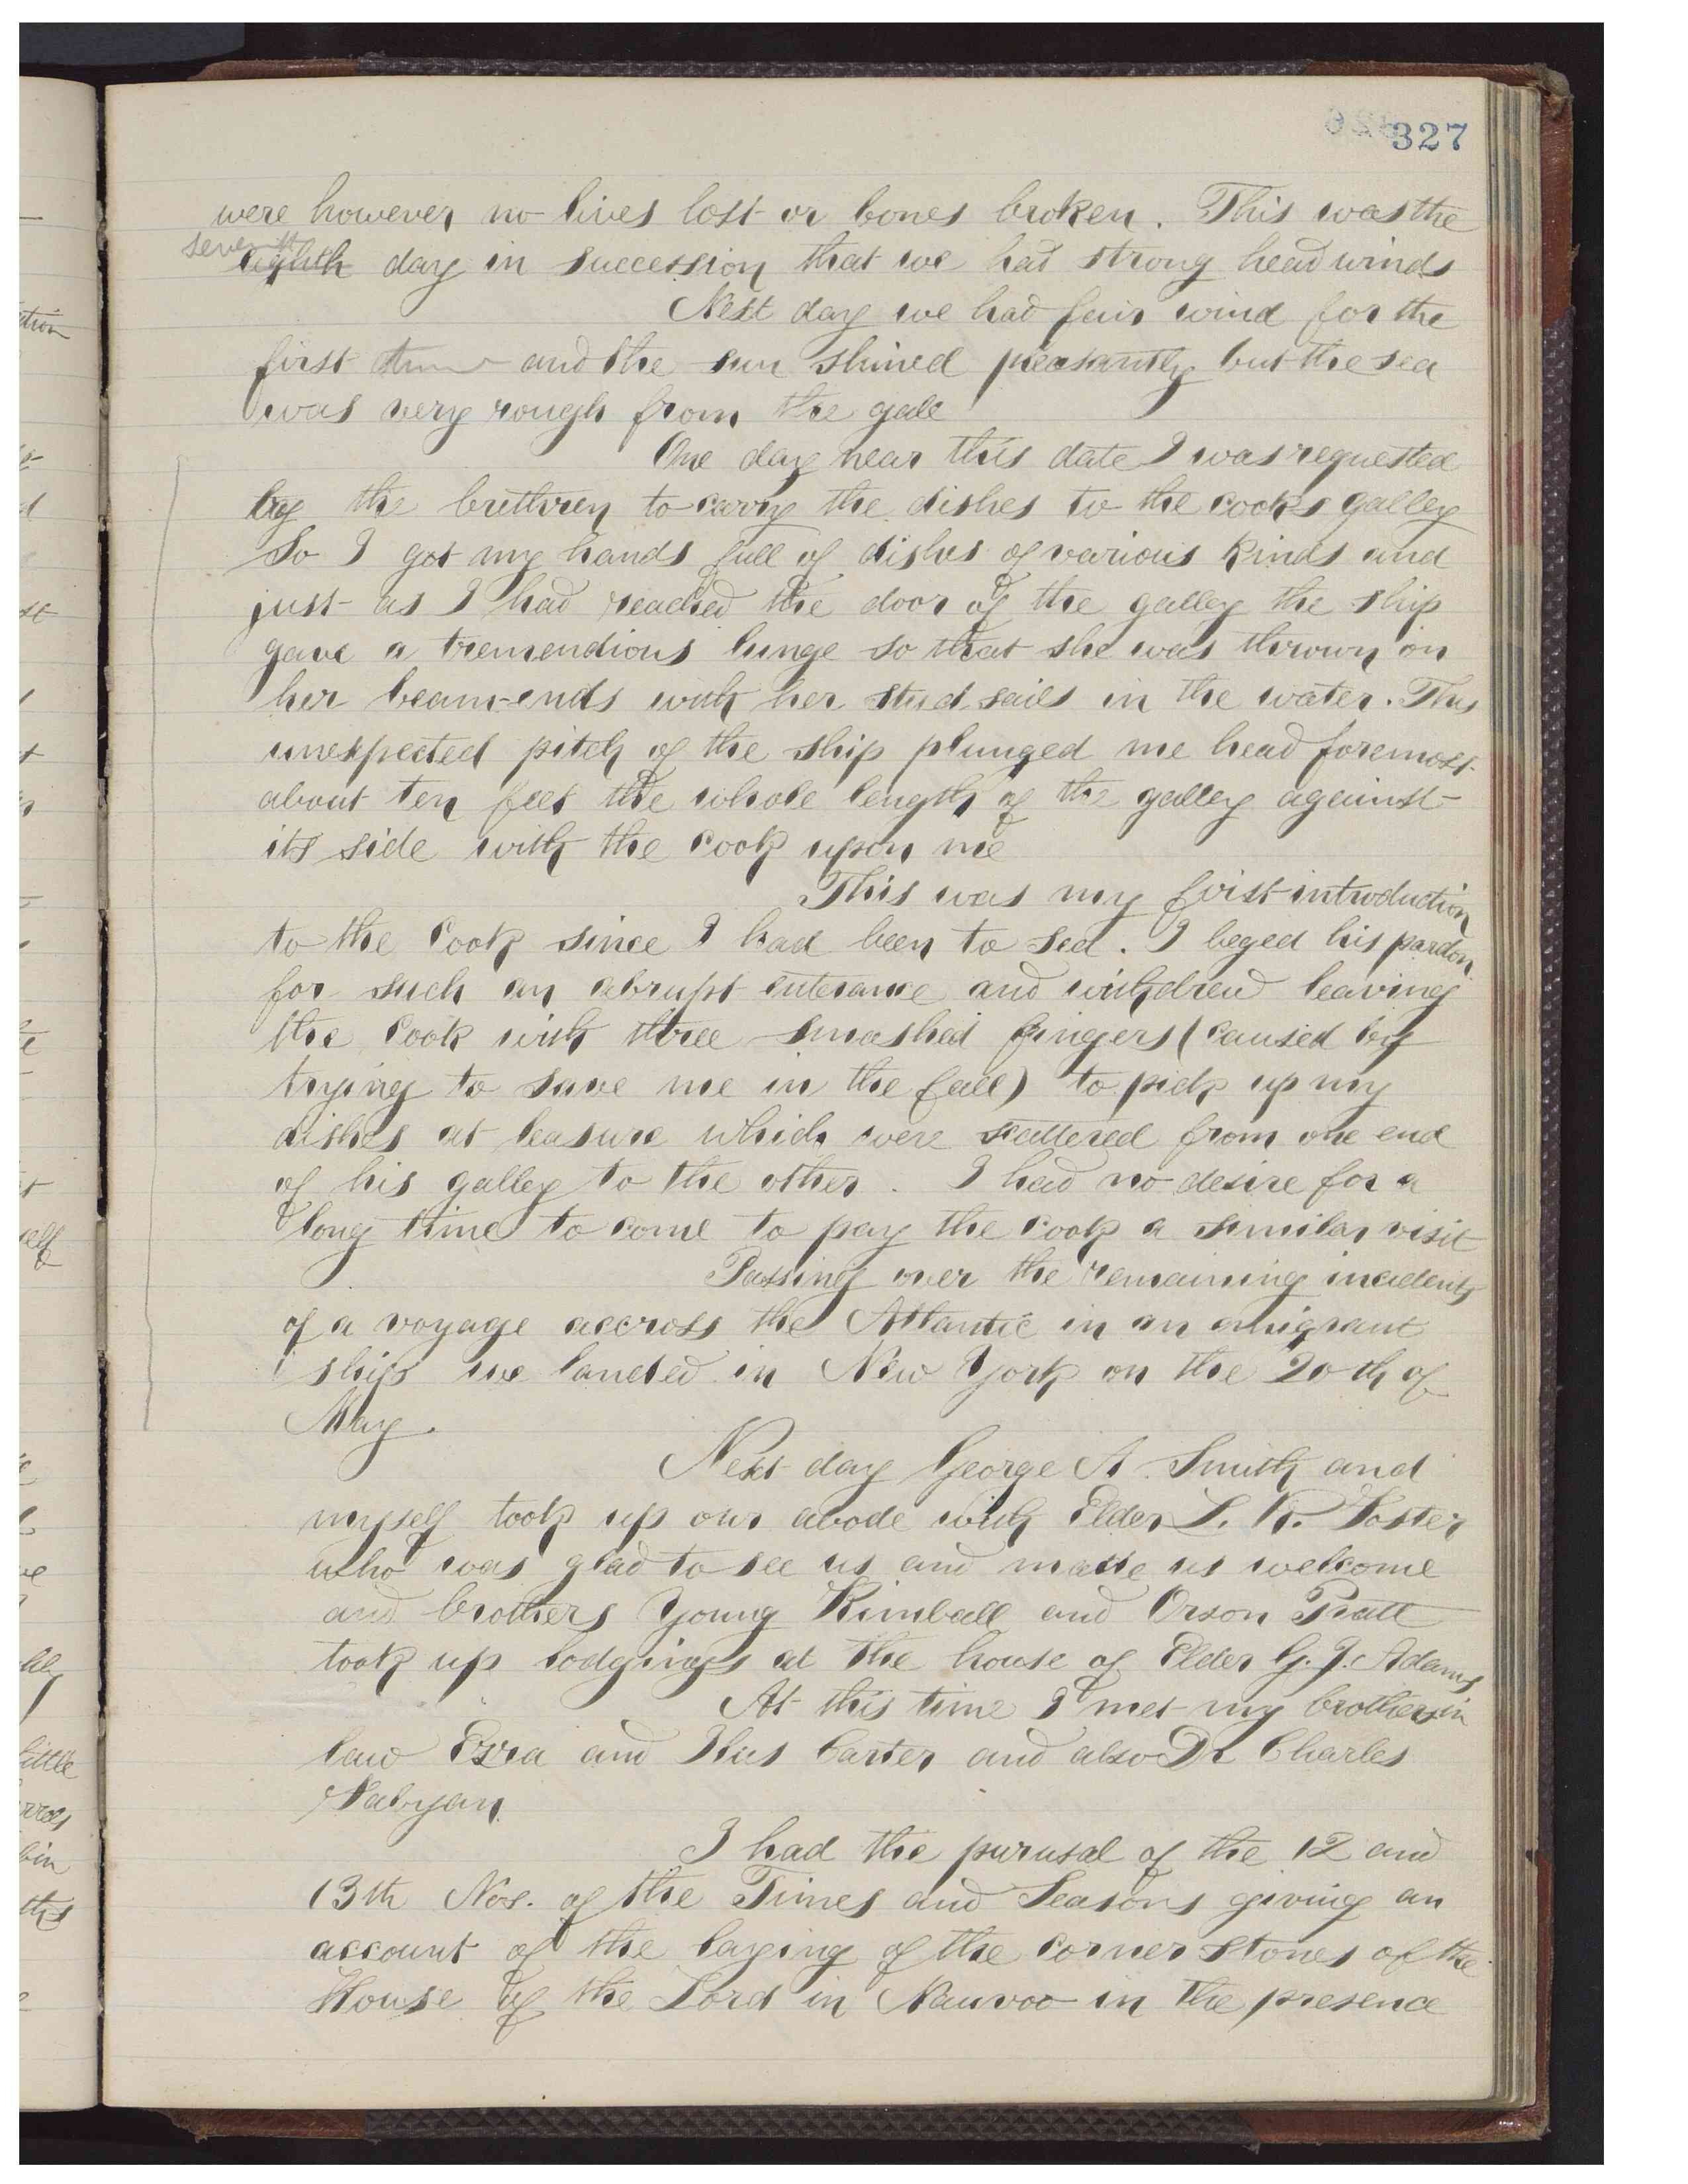 327
were however no lives lost or bones broken. This was the
seventh
eighth day in succession that we had strong head winds
Next day we had fair wind for the
first time and the sun shined pleasantly but the sea
was very rough from the gale
One day near this date I was requested
by the brethren to carry the dishes to the cooks galley
So I got my hands full of dishes of various kinds and
just as I had reached the door of the galley the ship
gave a tremendious lunge so that she was thrown on
her beam-ends with her stud sails in the water. This
unexpected pitch of the ship plunged me head foremost
about ten feet the whole length of the galley against
its side with the cook upon me
This was my first introduction
to the Cook since I had been to sea. I beged his pardon
for such an abrupt enterance and withdrew leaving
the Cook with three smashed fingers (caused by
trying to save me in the fall) to pick up my
dishes at leasure which were scattered from one end
of his galley to the other. I had no desire for a
long time to come to pay the cook a similar visit
Passing over the remaining incidents
of a voyage accross the Atlantic in an emigrant
ship we landed in New York on the 20th of
May.
Next day George A. Smith and
myself took up our abode with Elder L. R. Foster
who was glad to see us and made us welcome
and brothers Young Kimball and Orson Pratt
took up lodgings at the house of Elder G. J. Adams
At this time I met my brothers in
law Ezra and Ilus Carter and also Dr Charles
Nabyan
I had the purusal of the 12 and
13th Nos. of the Times and Seasons giving an
account of the laying of the corner stones of the
House of the Lord in Nauvoo in the presence